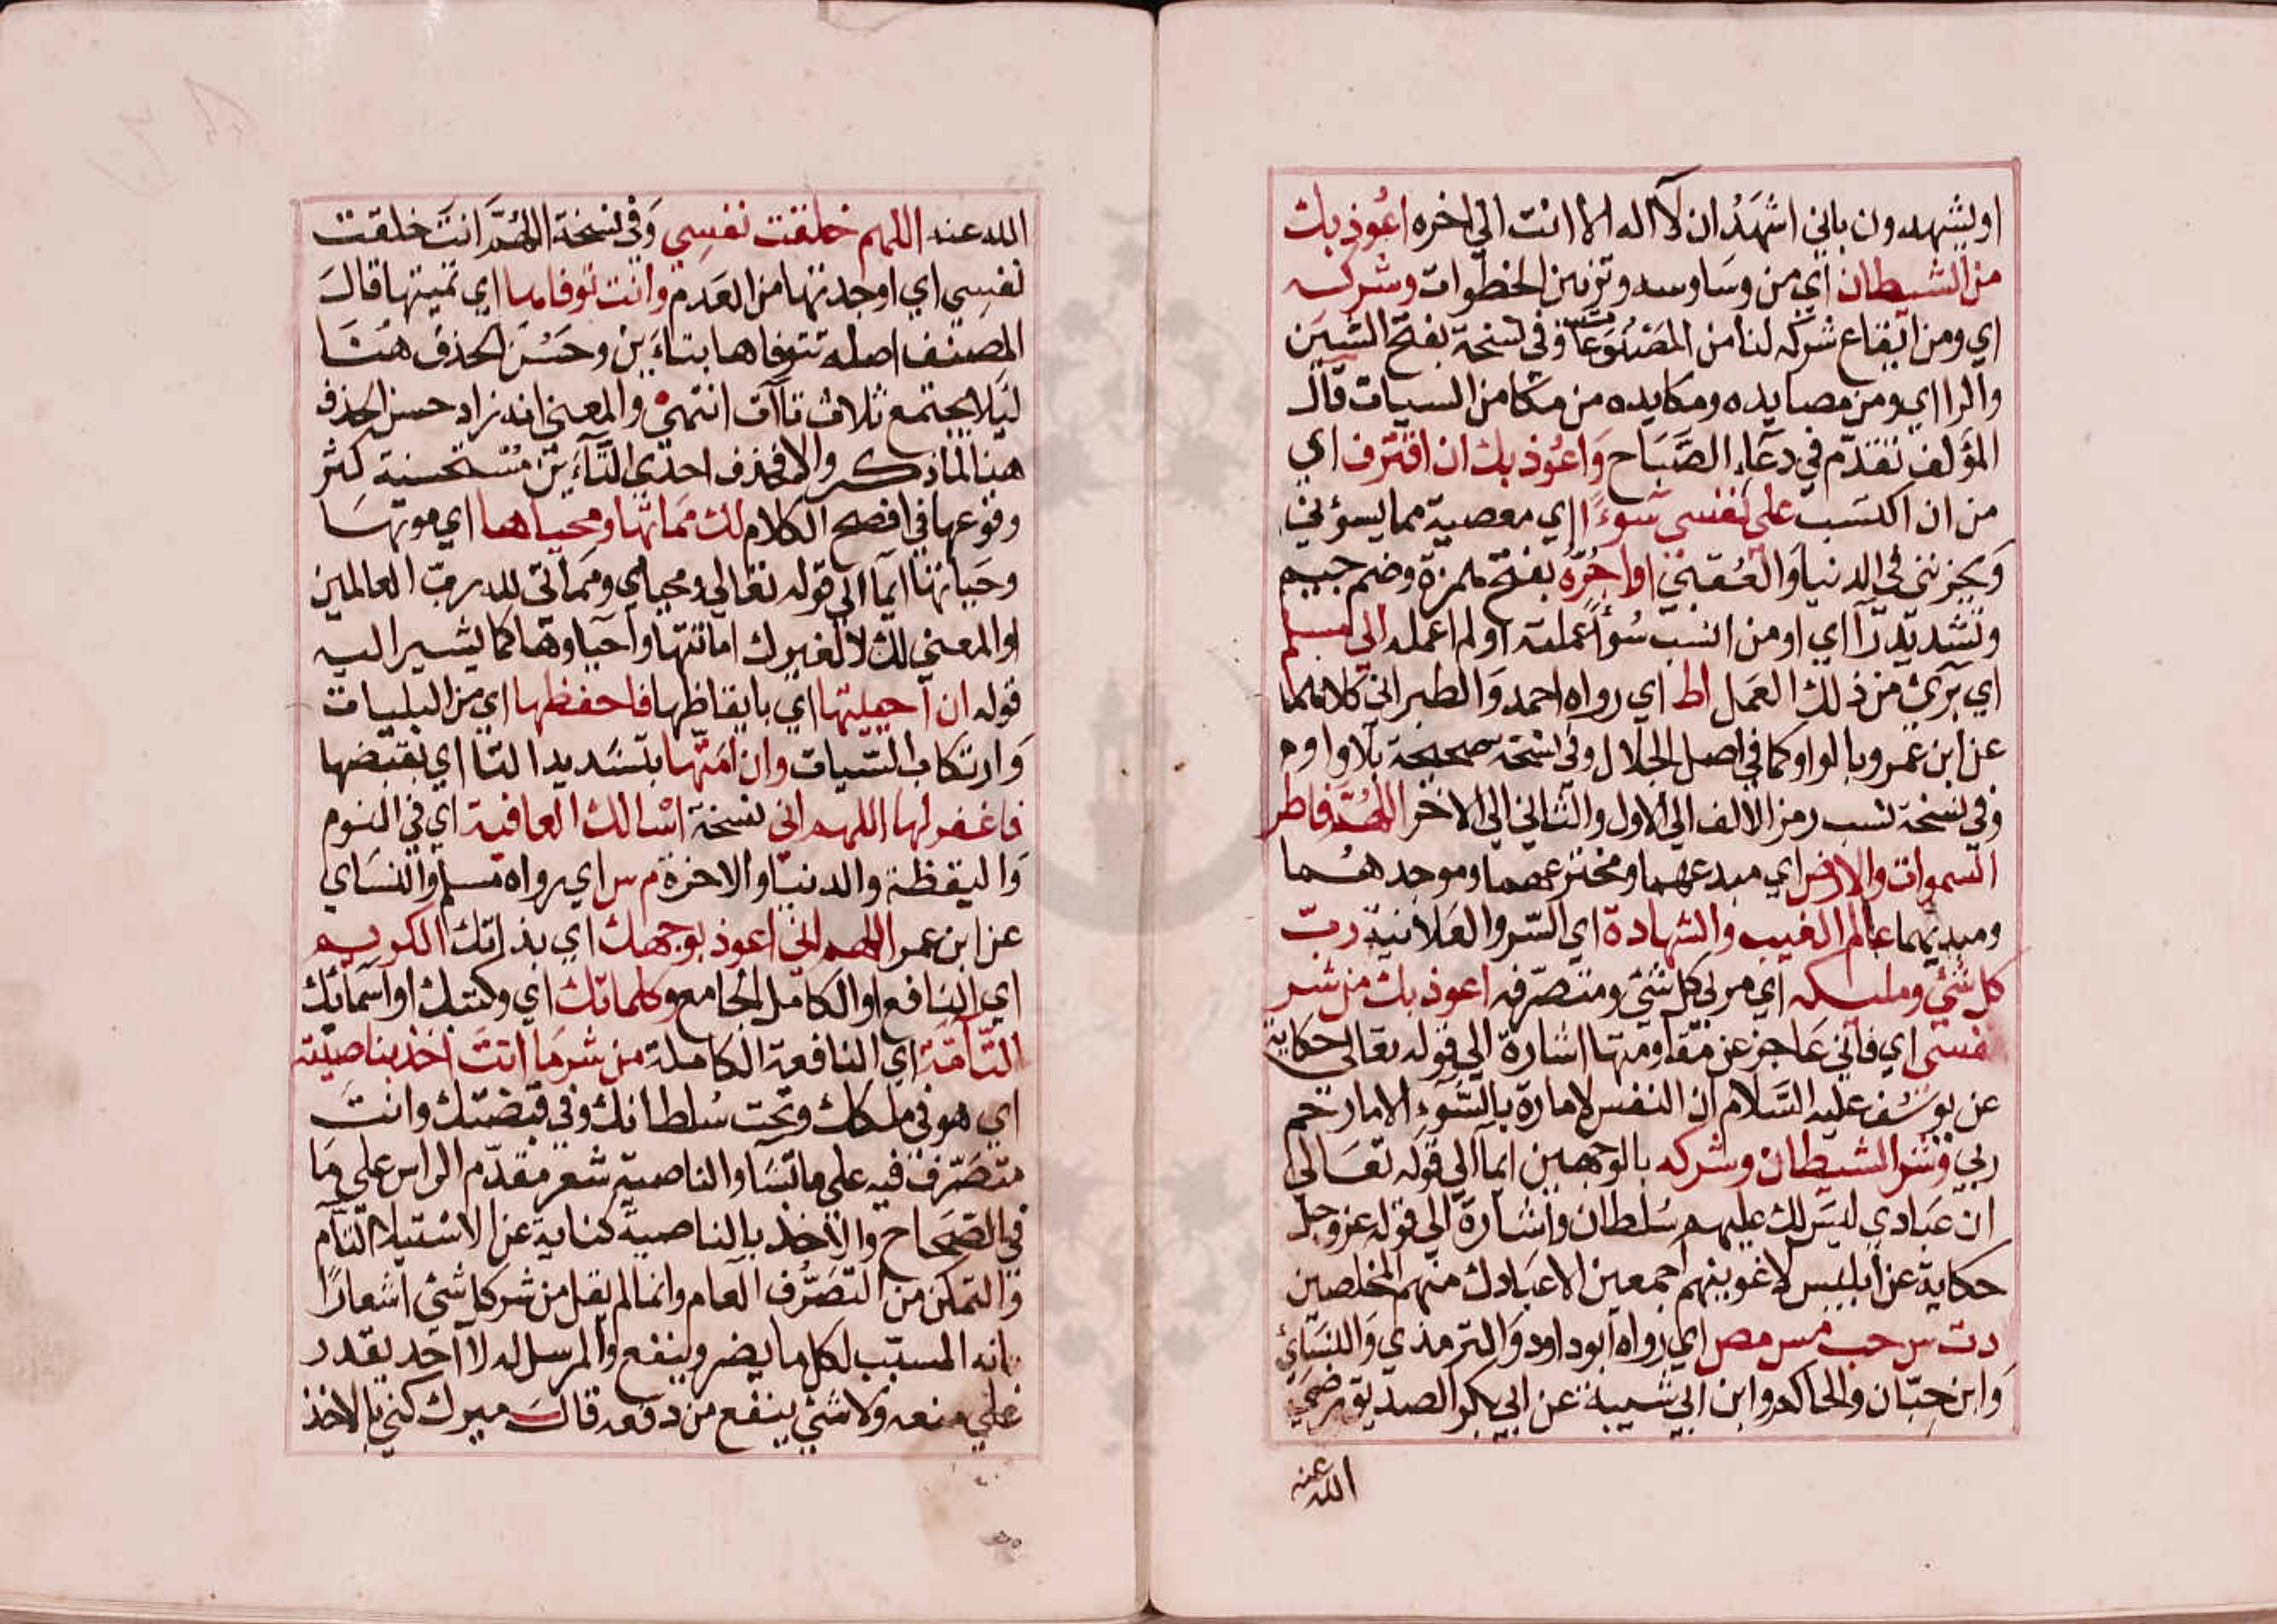 او يشهدون باني اشهَدُ ان لآ اله الا انت الي اخره اعُوذ بك
من الشيطان اي من وسَاوسه وتزيين الخطوات وشركه
اي ومن ايقاع شركه لنا من المصنوعا وفي نسخة بفتح الشين
والرا اي ومن مصايده ومكايده من مكامن السيات قال
المؤلف تقدّم في دعآءِ الصَّبَاح وَاعُوذ بك ان اقترف اي
من ان اكتسَب علي نفسى سُوءًا اي معصية مما يسؤني
ويحزنني في الدنيا والعُقبيٰ او اجُرّه بفتح همزة وضم جيم
وتشديد رآ اي او من انسب سُوأ عملته او لم اعمله الي مسلم
اي بَرئ من ذلك العَمل اط اي رواه احمد وَالطبراني كلاهما
عن ابن عَمرو بالواو كما في اصل الجلال وفي نسخة صحيحة بلا واو م
وفي نسخة نسب رمز الالف الي الاول والثاني الي الاخر اللهُمّ فاطر
السموات والارض اي مبدعهما ومخترعهما وموجدهُما
ومبديهما عالم الغيب والشهادة اي السّر والعَلانية ربّ
كل شئ ومليكه اي مربي كل شئ ومتصرّفه اعوذ بك من شر
نفسى اي فاني عَاجز عن مقاومتها اشارة الي قوله تعالي حكاية
عن يوسُف عليه السَّلام ان النفس لامارة بالسُّوءِ الا ما رحم
ربي وشر الشيطان وشركه بالوجهين ايمآ الي قوله تعَالي
ان عبَادي ليسَ لك عليهم سُلطان واشارة الي قوله عز وجل
حكاية عن ابليس لاغوينهم اجمعين الا عبَادك منهم المخلصين
د ت س حب مس مص اي رواه ابو داود وَالترمذي وَالنسَائ
وَابن حبّان والحاكم وابن ابي شيبة عن ابي بكر الصديق رضيَ
الله عنه
الله عنه اللهم خلقت نفسِي وَفي نسخة اللهُمَّ انتَ خلقت
نفسِي اي اوجدتها من العَدم وانت توفاها اي تميتها قالَ
المصنف اصله تتوفاها بتاءَين وحَسُنَ الحذف هُنَا
ليَلا يجتمع ثلاث تاآت انتهيٰ والمعني انه زاد حسن الحذف
هنا لما ذكر والا فحذف احدي التآءَين مُستحسنة كثر
وقوعها في افصح الكلام لك مَماتها ومحياها اي موتهَا
وحَياتها ايمآ الي قوله تعَالي ومحياي ومَماتي لله ربّ العالمين
او المعني لك لا لغيرك اماتتها واحياوها كما يشير اليه
قوله ان آحييتها اي بايقاظها فاحفظها اي من البليات
وَارتكاب السّيات وان امَتّها بتشديد التا اي بقبضها
فاغفر لها اللهم اني نسخة اسَالك العافية اي في النوم
وَاليقظة والدنيا والاخرة م س اي رواه مسلم والنسَاي
عن ابن عمر اللهم اني اعوذ بوجهك اي بذاتك الكريم
اي النافع او الكامل الجامع وكلماتك اي وكتبك او اسمآئك
التآمّة اي النافعة الكاملة من شر مَا انتَ اخذ بناصيته
اي هو في ملكك وتحت سُلطانك وفي قبضتك وانتَ
متصَرّف فيه علي ما تشَا والناصية شعر مقدّم الراس علي مَا
في الصّحاح والاخذ بالناصية كناية عن الاستيلا التام
وَالتمكن من التصَرُّف العام وانما لم يقل من شر كل شئ اشعارًا
بانه المسبّب لكل ما يضر وينفع والمرسل له لا احد يقدر
علي منعه ولا شئ ينفع من دفعه قالَ ميرك كني بالاخذ